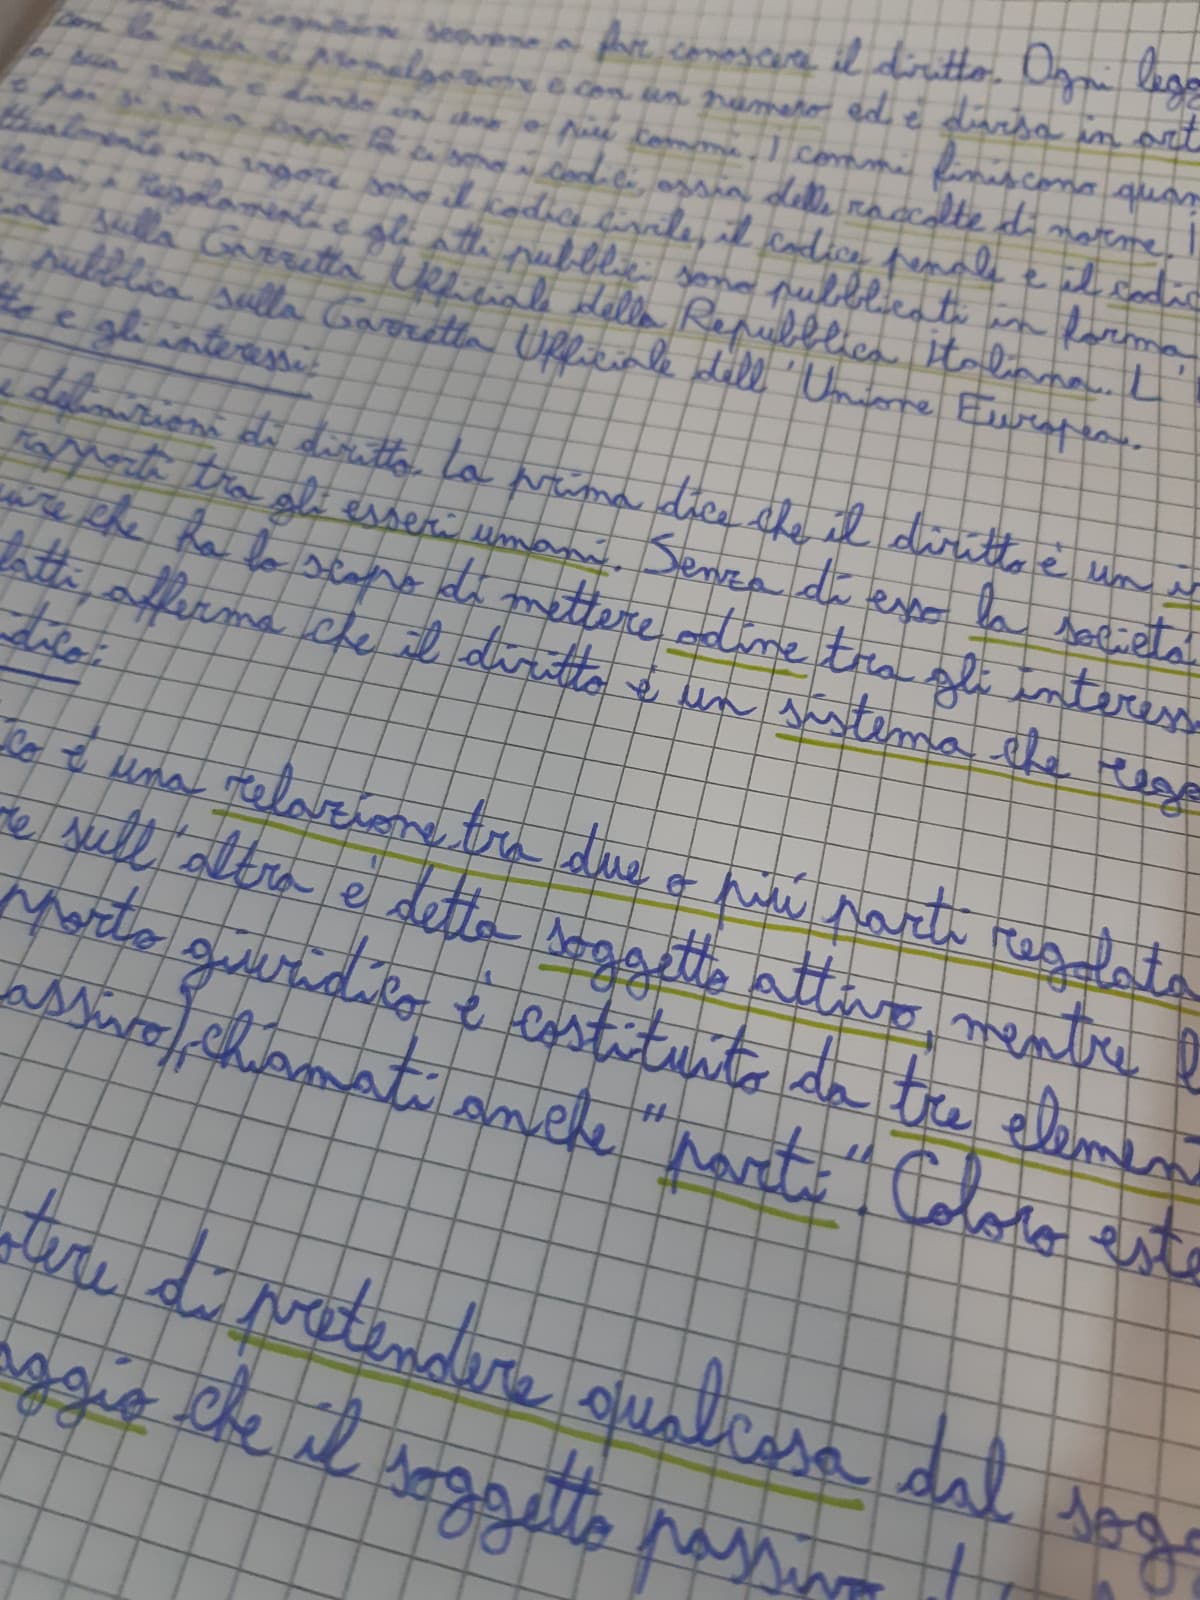 di cognizione servono a far conoscere il diritto. Ogni legg
con la data di promulgazione e con un numero ed è divisa in art
a sua volta, è diviso in uno o più commi. I commi finiscono quan
e poi si va a capo ci sono i codici, ossia delle raccolte di norme. I
in vigore sono il codice civile, il codice penale e il codic
leggi, i regolamenti e gli atti pubblici sono pubblicati in forma
iale sulla Gazzetta Ufficiale della Repubblica italiana. L'
pubblica sulla Gazzetta Ufficiale dell'Unione Europea.
tto e gli interessi:
e definizioni di diritto. La prima dice che il diritto è un i
rapporti tra gli esseri umani. Senza di esso la società
uire che ha lo scopo di mettere odine tra gli interess
fatti, afferma che il diritto è un sistema che rego
idico:
ico è una relazione tra due o più parti regolata
re sull'altra è detta soggetto attivo, mentre l
pporto giuridico è costituito da tre element
assivo), chiamati anche "parti". Coloro este
otere di pretendere qualcosa dal sogg
aggio che il soggetto passivo